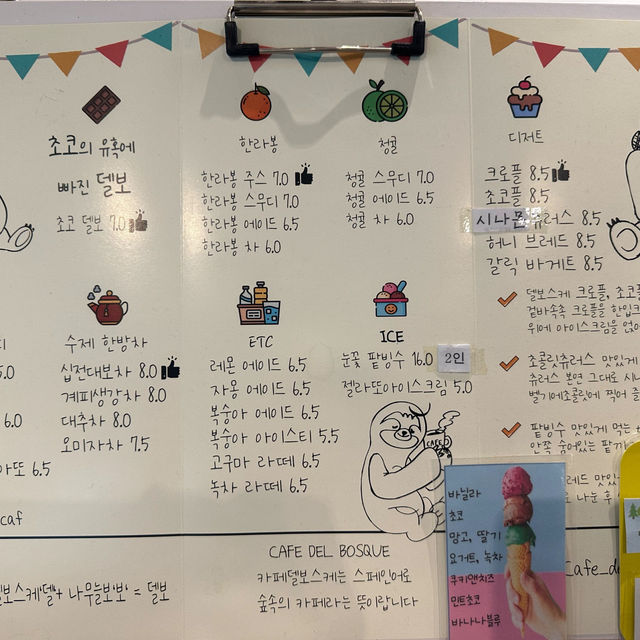 초코의 유혹에
빠진 델보
초코 델보 7.0
한라봉
한라봉 주스 7.0
한라봉 스무디 7.0
한라봉 에이드 6.5
한라봉 차 6.0
청귤
청귤 스무디 7.0
청귤 에이드 6.5
청귤 차 6.0
디저트
크로플 8.5
초코플 8.5
시나몬 츄러스 8.5
허니 브레드 8.5
갈릭 바게트 8.5
델보스케 크로플, 초코플
겉바속촉 크로플을 한입크
위에 아이스크림을 얹어
초콜릿츄러스 맛있게
츄러스 본연 그대로 시나
벨기에초콜릿에 찍어 즐
팥빙수 맛있게 먹는
안쪽 숨어있는 팥
5.0
6.0
6.5
수제 한방차
십전대보차 8.0
계피생강차 8.0
대추차 8.0
오미자차 7.5
ETC
레몬 에이드 6.5
자몽 에이드 6.5
복숭아 에이드 6.5
복숭아 아이스티 5.5
고구마 라떼 6.5
녹차 라떼 6.5
ICE
눈꽃 팥빙수 16.0 2인
젤라또아이스크림 5.0
CAFE
바닐라
초코
망고, 딸기
요거트, 녹차
쿠키앤치즈
민트초코
바나나블루
caf
보스케'델'+ 나무늘보'보' = 델보
CAFE DEL BOSQUE
카페델보스케는 스페인어로
숲속의 카페라는 뜻이랍니다
Cafe_d